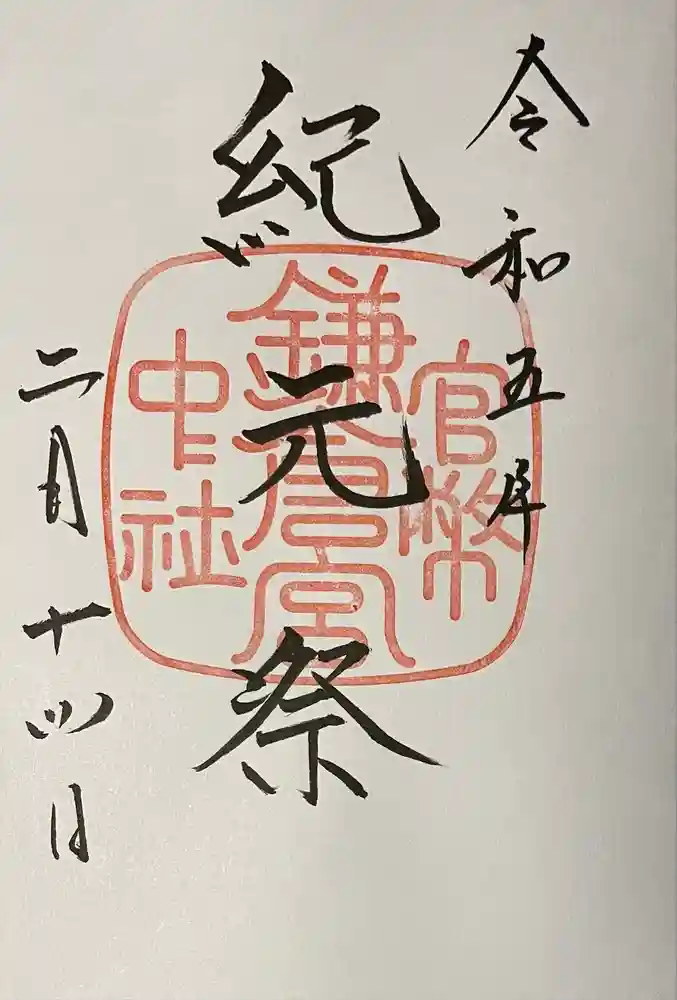 令和五年
紀元祭
官幣
鎌倉宮
中社
二月十四日